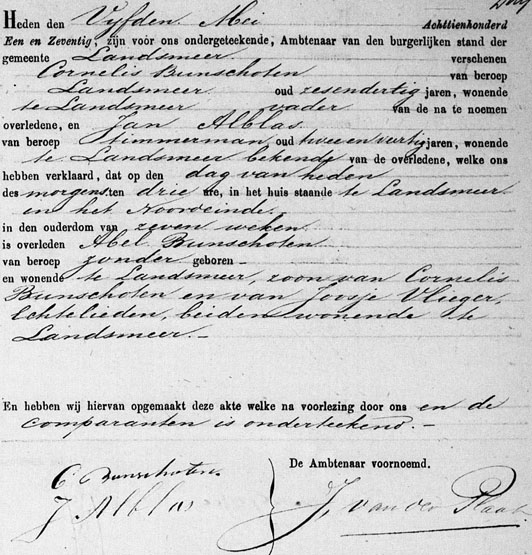 Heden den Vijfden Mei Achttienhonderd
Een en Zeventig, zijn vóór ons ondergeteekende, Ambtenaar van den burgerlijken stand der
gemeente Landsmeer verschenen
Cornelis Bunschoten van beroep
Landsmeer oud zesendertig jaren, wonende
te Landsmeer vader van de na te noemen
overledene, en Jan Alblas
van beroep timmerman, oud twee en veertig jaren, wonende
te Landsmeer bekende van de overledene, welke ons
hebben verklaard, dat op den dag van heden
des morgens ten drie ure, in het huis staande te Landsmeer
in het Noordeinde.
in den ouderdom van zeven weken
is overleden Abel Bunschoten
van beroep zonder geboren
en wonende te Landsmeer, zoon van Cornelis
Bunschoten en van Joosje Vlieger,
Echtelieden, beiden wonende te
Landsmeer.
En hebben wij hiervan opgemaakt deze akte welke na voorlezing door ons en de
comparanten is onderteekend.
C. Bunschoten
De Ambtenaar voornoemd.
J Alblas
J. van der Plaat